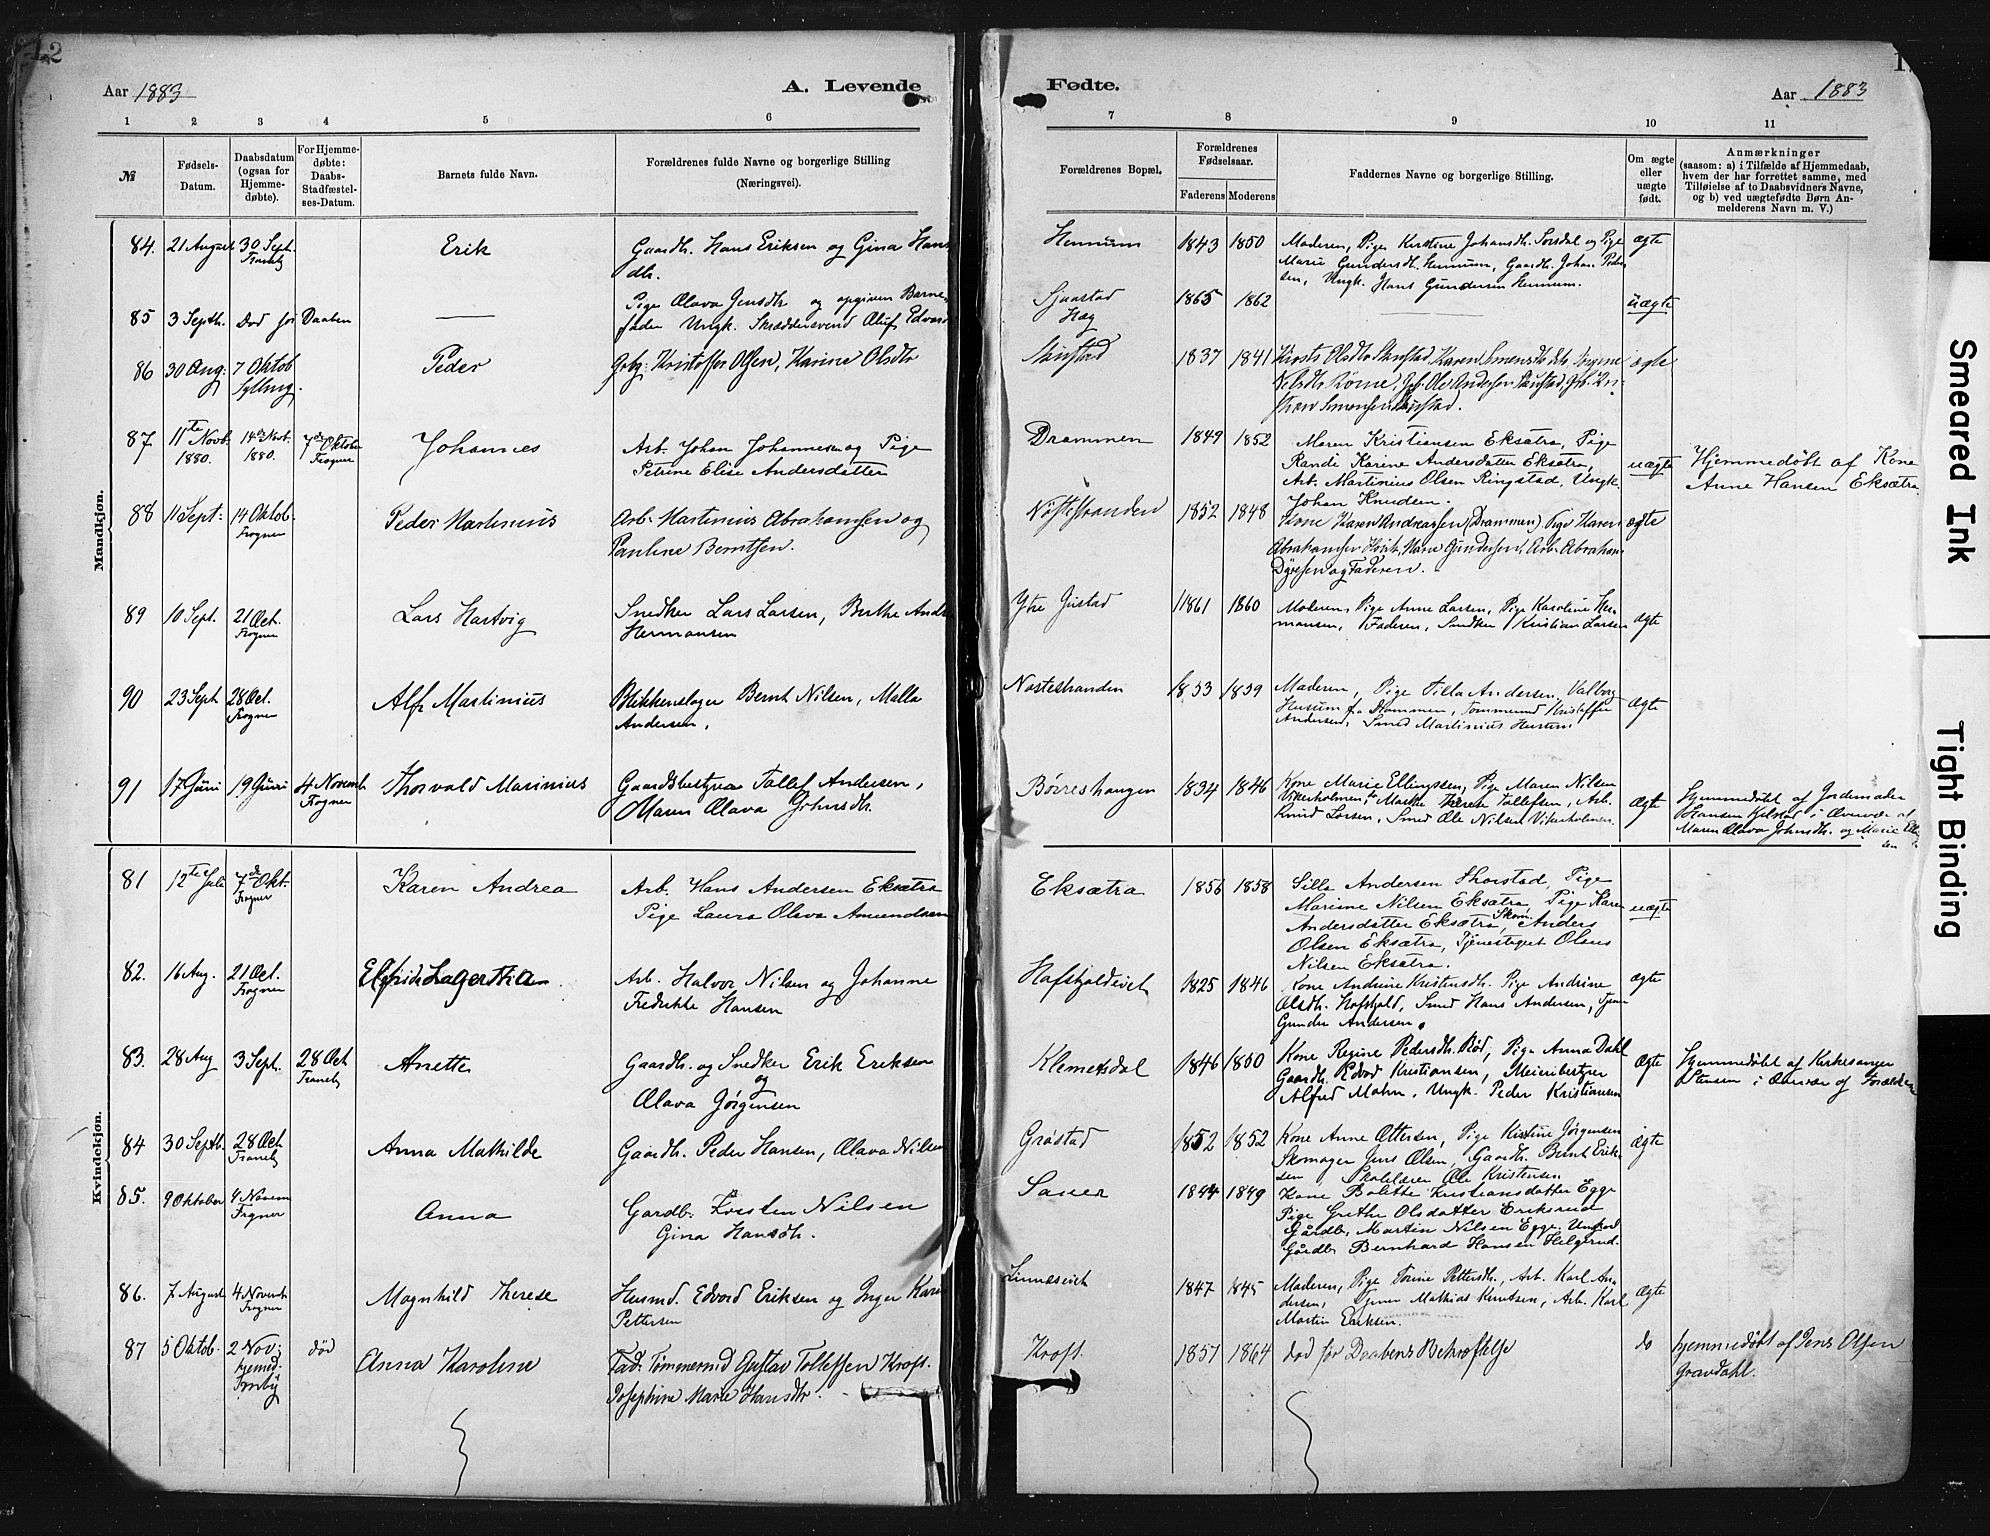 12
Aar 1883
A. Levende
1 2 3 4 5 6
№
Fødsels-Datum.
Daabsdatum (ogsaa for Hjemmedøbte).
For Hjemmedøbte: Daabs-Stadfæstelses-Datum.
Barnets fulde Navn.
Forældrenes fulde Navne og borgerlige Stilling (Næringsvei).
Mandkjøn.
84. 21 August 30 Sept. Tranby Erik Gaardb. Hans Eriksen og Gina Hans
dtr.
85 3 Septb. Død før Daaben —— Pige Olava Jensdtr og opgiven Barne-
fader Ungk. Skræddersvend Oluf Edvards
86 30 Aug: 7 Oktob Sylling. Peder Grbg: Kristoffer Olsen, Karine Olsdtr
87 11te Novb. 1880. 14de Novb. 1880. 7de Oktober Frogner Johannes Arb. Johan Johannesen og Pige
Petrine Elise Andersdatter
88 11 Sept: 14 Oktob. Frogner Peder Martinius Arb. Martinius Abrahamsen og
Pauline Berntsen.
89 10 Sept. 21 Oct. Frogner Lars Hartvig Snedker Lars Larsen, Berthe Andr
Hermansen
90 23 Sept 28 Oct. Frogner Alf Martinius Blikkenslager Bernt Nilsen, Malla
Andersen.
91 17 Juni 19 Juni 4 Novemb. Frogner Thorvald Marinius Gaardsbestyrer Tollef Andersen,
Maren Olava Johnsdtr.
Kvindekjøn.
81 12te Juli 7de Okt. Frogner Karen Andrea Arb. Hans Andersen Eksætra
Pige Laura Olava Amundsen
82. 16 Aug. 21 Oct. Frogner Elfride Lagertha Arb. Halvor Nilsen og Johanne
Fredrikke Hansen
83. 28 Aug 3 Sept. 28 Oct Tranby Anette Gaardb. og Snedker Erik Eriksen
og
Olava Jørgensen
84 30 Septb. 28 Oct Tranby Anna Mathilde Gaardb. Peder Hansen, Olava Nilsen
85. 9 Oktober 4 Novem Frogner Anna Gardb. Kresten Nilsen
Gina Hansdtr.
86. 7 August 4 Novemb. Frogner Magnhild Therese Husmd. Edvard Eriksen og Inger Karin
Pettersen
87 5 Oktob. 2 Nov: hjemd. Tranby død Anna Karoline Fad: Tømmermd Gustav Tollefsen Kroft.
Josephine Marie Hansdtr.
Fødte.
Aar 1883
7 8 9 10 11
Forældrenes Bopæl.
Forældrenes Fødselsaar.
Faderens Moderens
Faddernes Navne og borgerlige Stilling.
Om ægte eller uægte født.
Anmærkninger
(saasom: a) i Tilfælde af Hjemmedaab,
hvem der har forrettet samme, med
Tilføielse af to Daabsvidners Navne,
og b) ved uægtefødte Børn An-
melderens Navn m. V.)
Hennum 1843 1850 Moderen, Pige Kirstine Johansdtr. Sørsdal og Pige
Marie Gundersdtr. Hennum, Gaardb. Johan Peder-
sen, Ungk. Hans Gundersen Hennum. ægte
Sjaastad
Hæg 1865 1862 —— uægte
Skustad 1837 1841 ægte
Drammen 1849 1852 Maren Kristiansen Eksætra, Pige
Randi Karine Andersdatter Eksætra,
Arb. Martinius Olsen Ringstad, Ungk.
Johan Knudsen. uægte Hjemmedøbt af Kone
Anne Hansen Eksætra
Nøstestranden 1852 1848 Kone Karen Andreassen (Drammen) Pige Karen
Abrahamsen Marie Gundersen, Arb. Abraham
og Faderen. ægte
Ytre Justad 1861 1860 Moderen, Pige Anne Larsen, Pige Karoline Her-
mansen, Faderen, Snedker Kristian Larsen ægte
Nøstestranden 1853 1859 Moderen, Pige Tilla Andersen, Valborg
Husum fra Drammen, Tømmermd Kristoffer
Andersen, Smed Martinius Husum ægte
Børreshaugen 1834 1846 Kone Marie Ellingsen, Pige Maren Nilsen
Vikerholmen, Marthe Tollefsen, Arb.
Knud Larsen, Smed Ole Nilsen Vikerholmen. ægte Hjemmedøbt af Jordemoder
Hansen Kjelstad i Overvær af
Maren Olava Johnsdtr. og Marie Elling
sen
Eksætra 1856 1858 Silla Andersen Thorstad, Pige
Marime Nilsen Eksætra, Pige Karen
Andersdatter Eksætra, Skom. Anders
Olsen Eksætra, Tjenestegut Olaus
Nilsen Eksætra. uægte
Hafskjoldeiet 1825 1846 Kone Andrine Kristensdtr. Pige Andrine
Olsdtr. Hafskjold, Smed Hans Andersen, Tjener
Gunder Andersen. ægte
Klemetsdal 1846 1850 Kone Regine Pedersdtr. Rød, Pige Anna Dahl
Gaardb. Edvard Kristiansen, Meieribestyrer
Alfred Mohn, Ungk. Peder Kristiansen ægte Hjemmedøbt af Kirkesanger
Stensen i Overvær af Forældre
Grøstad 1852 1852 Kone Anne Ottersen, Pige Kistine Jørgensen
Skomager Jens Olsen, Gaardb. Bernt Erik-
sen Skolelærer Ole Kristensen ægte
Saner 1844 1849 Kone Bolette Kristiansdatter Egge
Pige Grethe Olsdatter Eriksrud
Gårdb. Martin Nilsen Egge, Ungkarl
Gårdb. Bernhard Hansen Helgerud.
Linneseiet 1847 1845 Moderen, Pige Torine Pettersdtr., Arb. Karl An-
dersen, Tjener Mathias Knutsen, Arb. Karl
Martin Eriksen. ægte
Kroft. 1857 1864 død før Daabens Bekræftelse do hjemmedøbt af Jens Olsen
Gravdahl.
Smeared Ink
Tight Binding